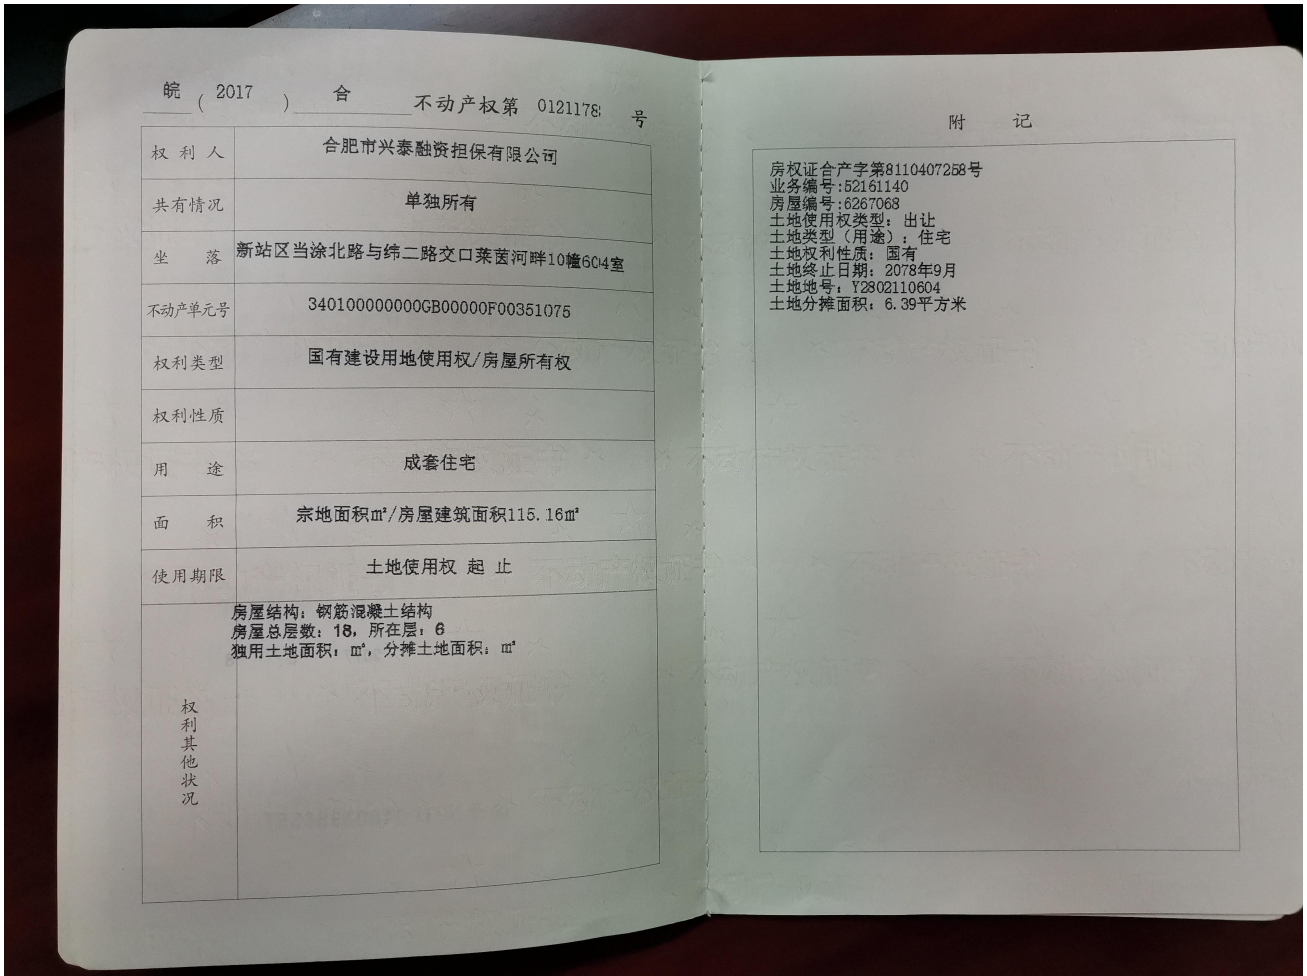 皖（2017）合 不动产权第 0121178 号
权利人 合肥市兴泰融资担保有限公司
共有情况 单独所有
坐落 新站区当涂北路与纬二路交口莱茵河畔10幢604室
不动产单元号 340100000000GB00000F00351075
权利类型 国有建设用地使用权/房屋所有权
权利性质
用途 成套住宅
面积 宗地面积㎡/房屋建筑面积115.16㎡
使用期限 土地使用权 起 止
权利其他状况
房屋结构：钢筋混凝土结构
房屋总层数：18，所在层：6
独用土地面积：㎡，分摊土地面积：㎡
附记
房权证合产字第8110407258号
业务编号:52161140
房屋编号:6267068
土地使用权类型：出让
土地类型（用途）：住宅
土地权利性质：国有
土地终止日期：2078年9月
土地地号：Y2802110604
土地分摊面积：6.39平方米